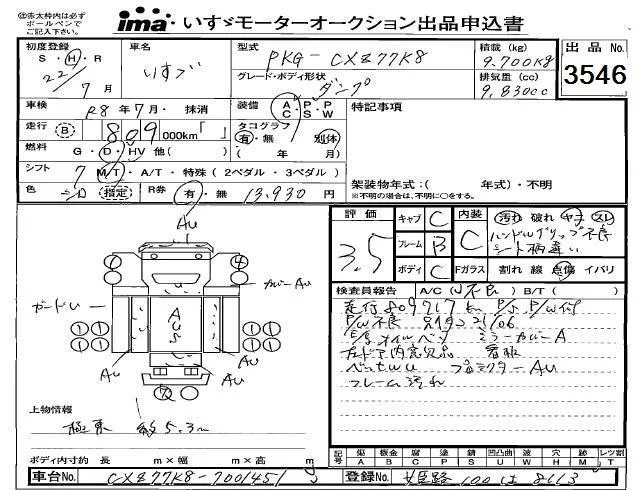 ㊟赤太枠内は必ず
ボールペンで
ご記入下さい。
ima・いすゞモーターオークション出品申込書
初度登録
S・H・R
22年
7月
車名
いすゞ
型式
PKG-CXZ77K8
グレード・ボディ形状
ダンプ
積載 (kg)
9.700K8
排気量 (cc)
9.830cc
出品 No.
3546
車検
R8年7月・抹消
装備
A・P・P
C・S・W
特記事項
走行 B
809 000km「 」
タコグラフ
有・無 別体
( 年 月)
燃料
G・D・HV 他( )
シフト
7 M/T・A/T・特殊 (2ペダル・3ペダル)
架装物年式:( 年式)・不明
※不明の場合は、不明に○をする。
色
指定
R券
有・無
13,930円
Au
カバーAu
Aus
Au
Au
評価
3.5
キャブ C
フレーム B
ボディ C
内装
C
汚れ 破れ ヤキ スレ
ハンドルグリップ不良
シート柄違い
Fガラス
割れ 線 点傷 イバリ
検査員報告
A/C(W不良) B/T( )
走行809717km P/S P/W付
P/W不良
ミラーカバーA
フレーム汚れ
上物情報
極東 約5.3m
ボディ内寸約 長 m×幅 m×高 m
記号
傷 A
板金 B
腐 C
塗 P
錆 S
凹凸曲 U
波 W
穴 H
跡 M
レツ割 T
車台No.
CXZ77K8-7001451
登録No.
姫路 100 は 8113